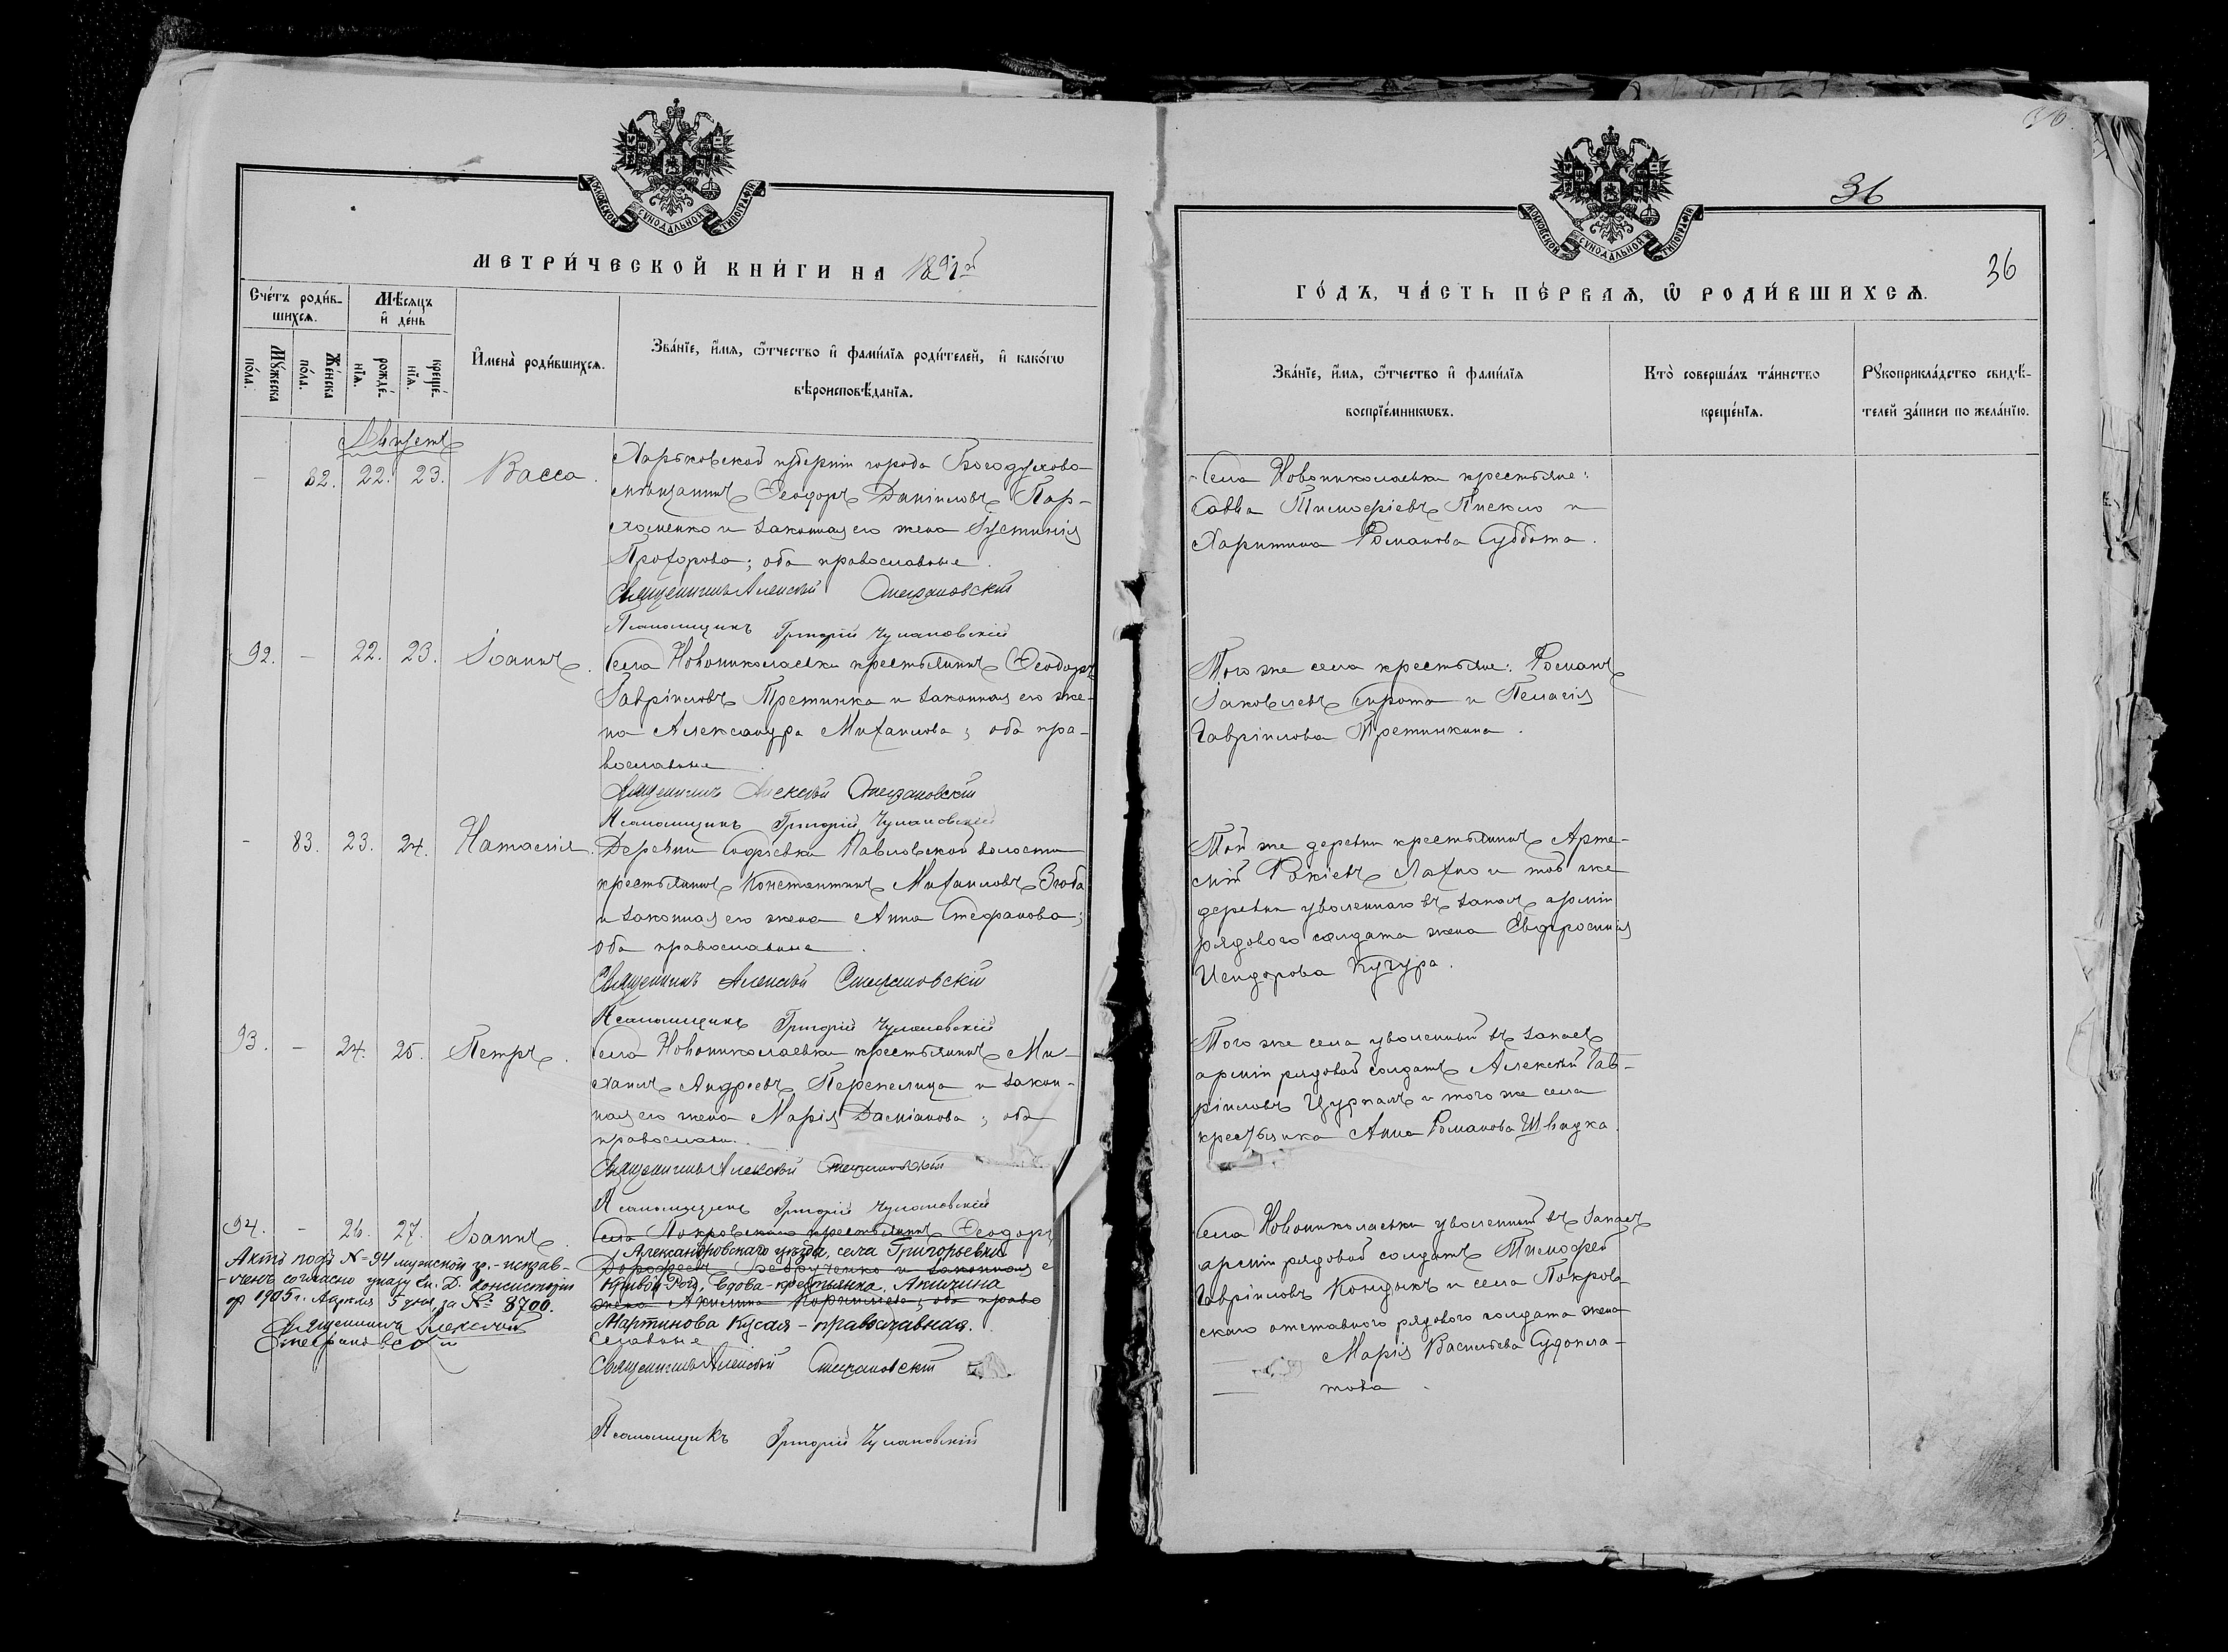 МОСКОВСКОЙ СУНОДАЛЬНОЙ ТИПОГРАФІИ
МЕТРИ́ЧЕСКОЙ КНИ́ГИ НА 1891й
Сче́тъ роди́в-
шихсѧ.
Мѣ́сѧцъ
и҆ де́нь
Мꙋ́жеска
по́ла.
Же́нска
по́ла.
рожде́-
нїѧ.
креще́-
нїѧ.
И҆мена̀ роди́вшихсѧ.
Зва́нїе, и҆́мѧ, ѻ҆́тчество и҆ фами́лїѧ роди́телей, и҆ како́гѡ
вѣроисповѣ́данїѧ.
Августъ
– 82. 22. 23. Васса.
Харьковской губерніи города Богодухова
мѣщанинъ Ѳеодоръ Даніиловъ Пар-
хоменко и законная его жена Іустинія
Прохорова; оба православные.
Священникъ Алексѣй Стефановскій
Псаломщикъ Григорій Чулановскій
92. – 22. 23. Іоаннъ.
Села Новониколаевки крестьянинъ Ѳеодоръ
Гавріиловъ Третинка и законная его же-
на Александра Михаилова; оба пра-
вославные
Священникъ Алексѣй Стефановскій
Псаломщикъ Григорій Чулановскій
– 83. 23. 24. Наталія.
Деревни Софіевки Павловской волости
крестьянинъ Константинъ Михаиловъ Зюба
и законная его жена Анна Стефанова;
оба православные.
Священникъ Алексѣй Стефановскій
Псаломщикъ Григорій Чулановскій
93. – 24. 25. Петръ.
Села Новониколаевки крестьянинъ Ми-
хаилъ Андреевъ Перепелица и закон-
ная его жена Марія Даміанова; оба
православн.
Священникъ Алексѣй Стефановскій
Псаломщикъ Григорій Чулановскій
94. – 26. 27. Іоаннъ.
Села Покровскаго крестьянинъ Ѳеодоръ
Александровскаго уѣзда, села Григорьевки
Дорофеевъ и законная е
Кривой Рогъ, вдова-крестьянка, Акилина
жена Акилина Корнилiева; оба право
Мартинова Кусая – православная.
славные
Священникъ Алексѣй Стефановскій
Псаломщикъ Григорій Чулановскій
Актъ подъ № 94 мужской гр. - исправ-
-ленъ согласно указу Ек. Д. Консисторіи
от 1905 г. Апрѣля 5 дня, за № 8700.
Священникъ Алексѣй
Стефановскій
36
36
МОСКОВСКОЙ СУНОДАЛЬНОЙ ТИПОГРАФІИ
36
ГО́ДЪ, ЧА́СТЬ ПЕ́РВАѦ, Ѽ РОДИ́ВШИХСѦ.
Зва́нїе, и҆́мѧ, ѻ҆́тчество и҆ фами́лїѧ
воспрїе́мникѡвъ.
Кто̀ соверша́лъ та́инство
креще́нїѧ.
Рꙋкоприкла́дство свидѣ́-
телей за́писи по жела́нїю.
Села Новониколаевки крестьяне:
Савва Тимофіевъ Пискло и
Харитина Романова Суббота.
Того же села крестьяне: Романъ
Іаковлевъ Сирота и Пелагія
Гавріилова Третинкина.
Той же деревни крестьянинъ Арте-
мій Фокіевъ Лахно и той же
деревни уволеннаго въ запасъ арміи
рядового солдата жена Евфросинія
Исидорова Кучура.
Того же села уволенный въ запасъ
арміи рядовой солдатъ Алексѣй Гав-
ріиловъ Цуркалъ и того же села
крестьянка Анна Романова Швидка.
Села Новониколаевки уволенный въ запасъ
арміи рядовой солдатъ Тимофей
Гавріиловъ Кондыкъ и села Покров-
скаго отставного рядового солдата жена
Марія Васильева Судопла-
това.